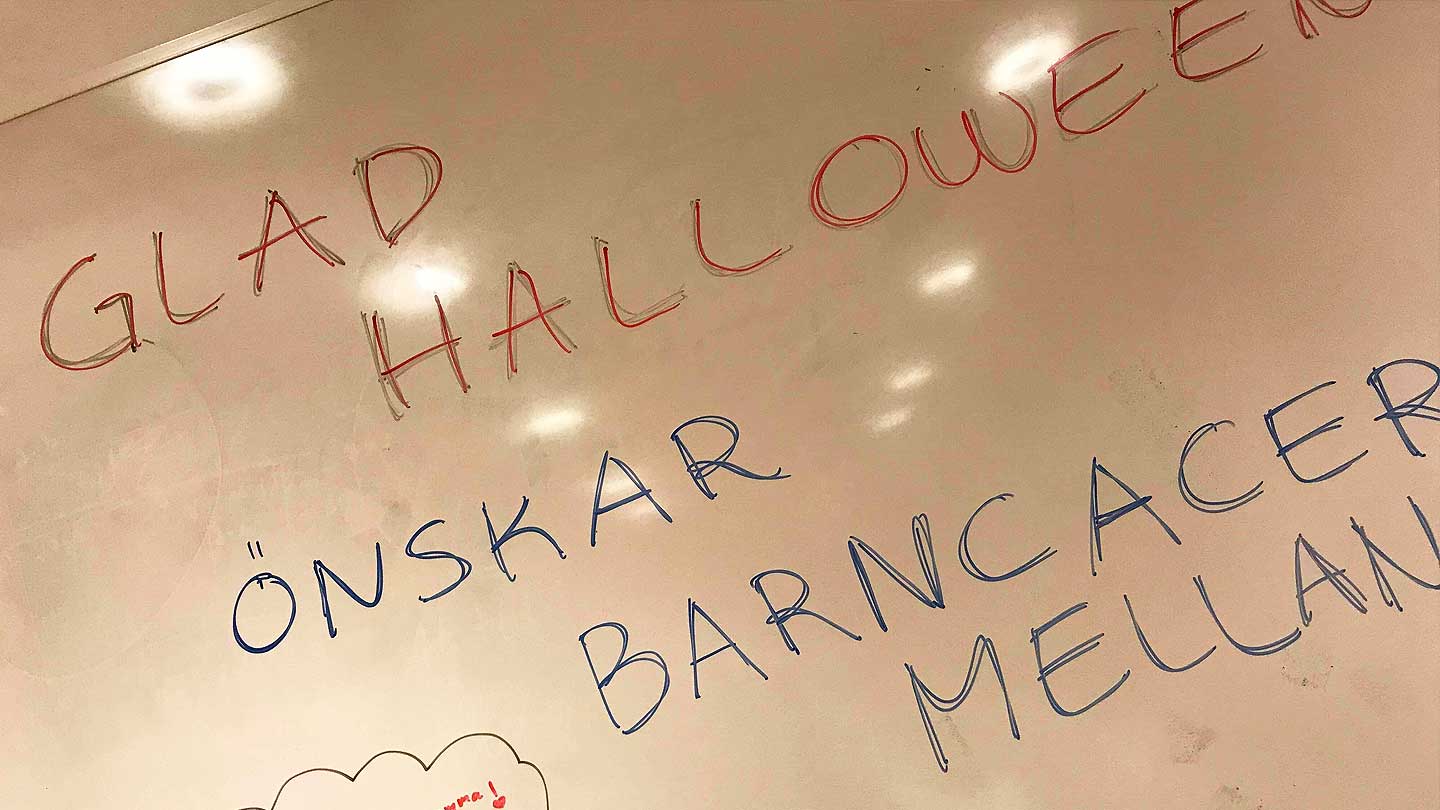 GLAD
HALLOWEEN
ÖNSKAR
BARNCACER
MELLAN